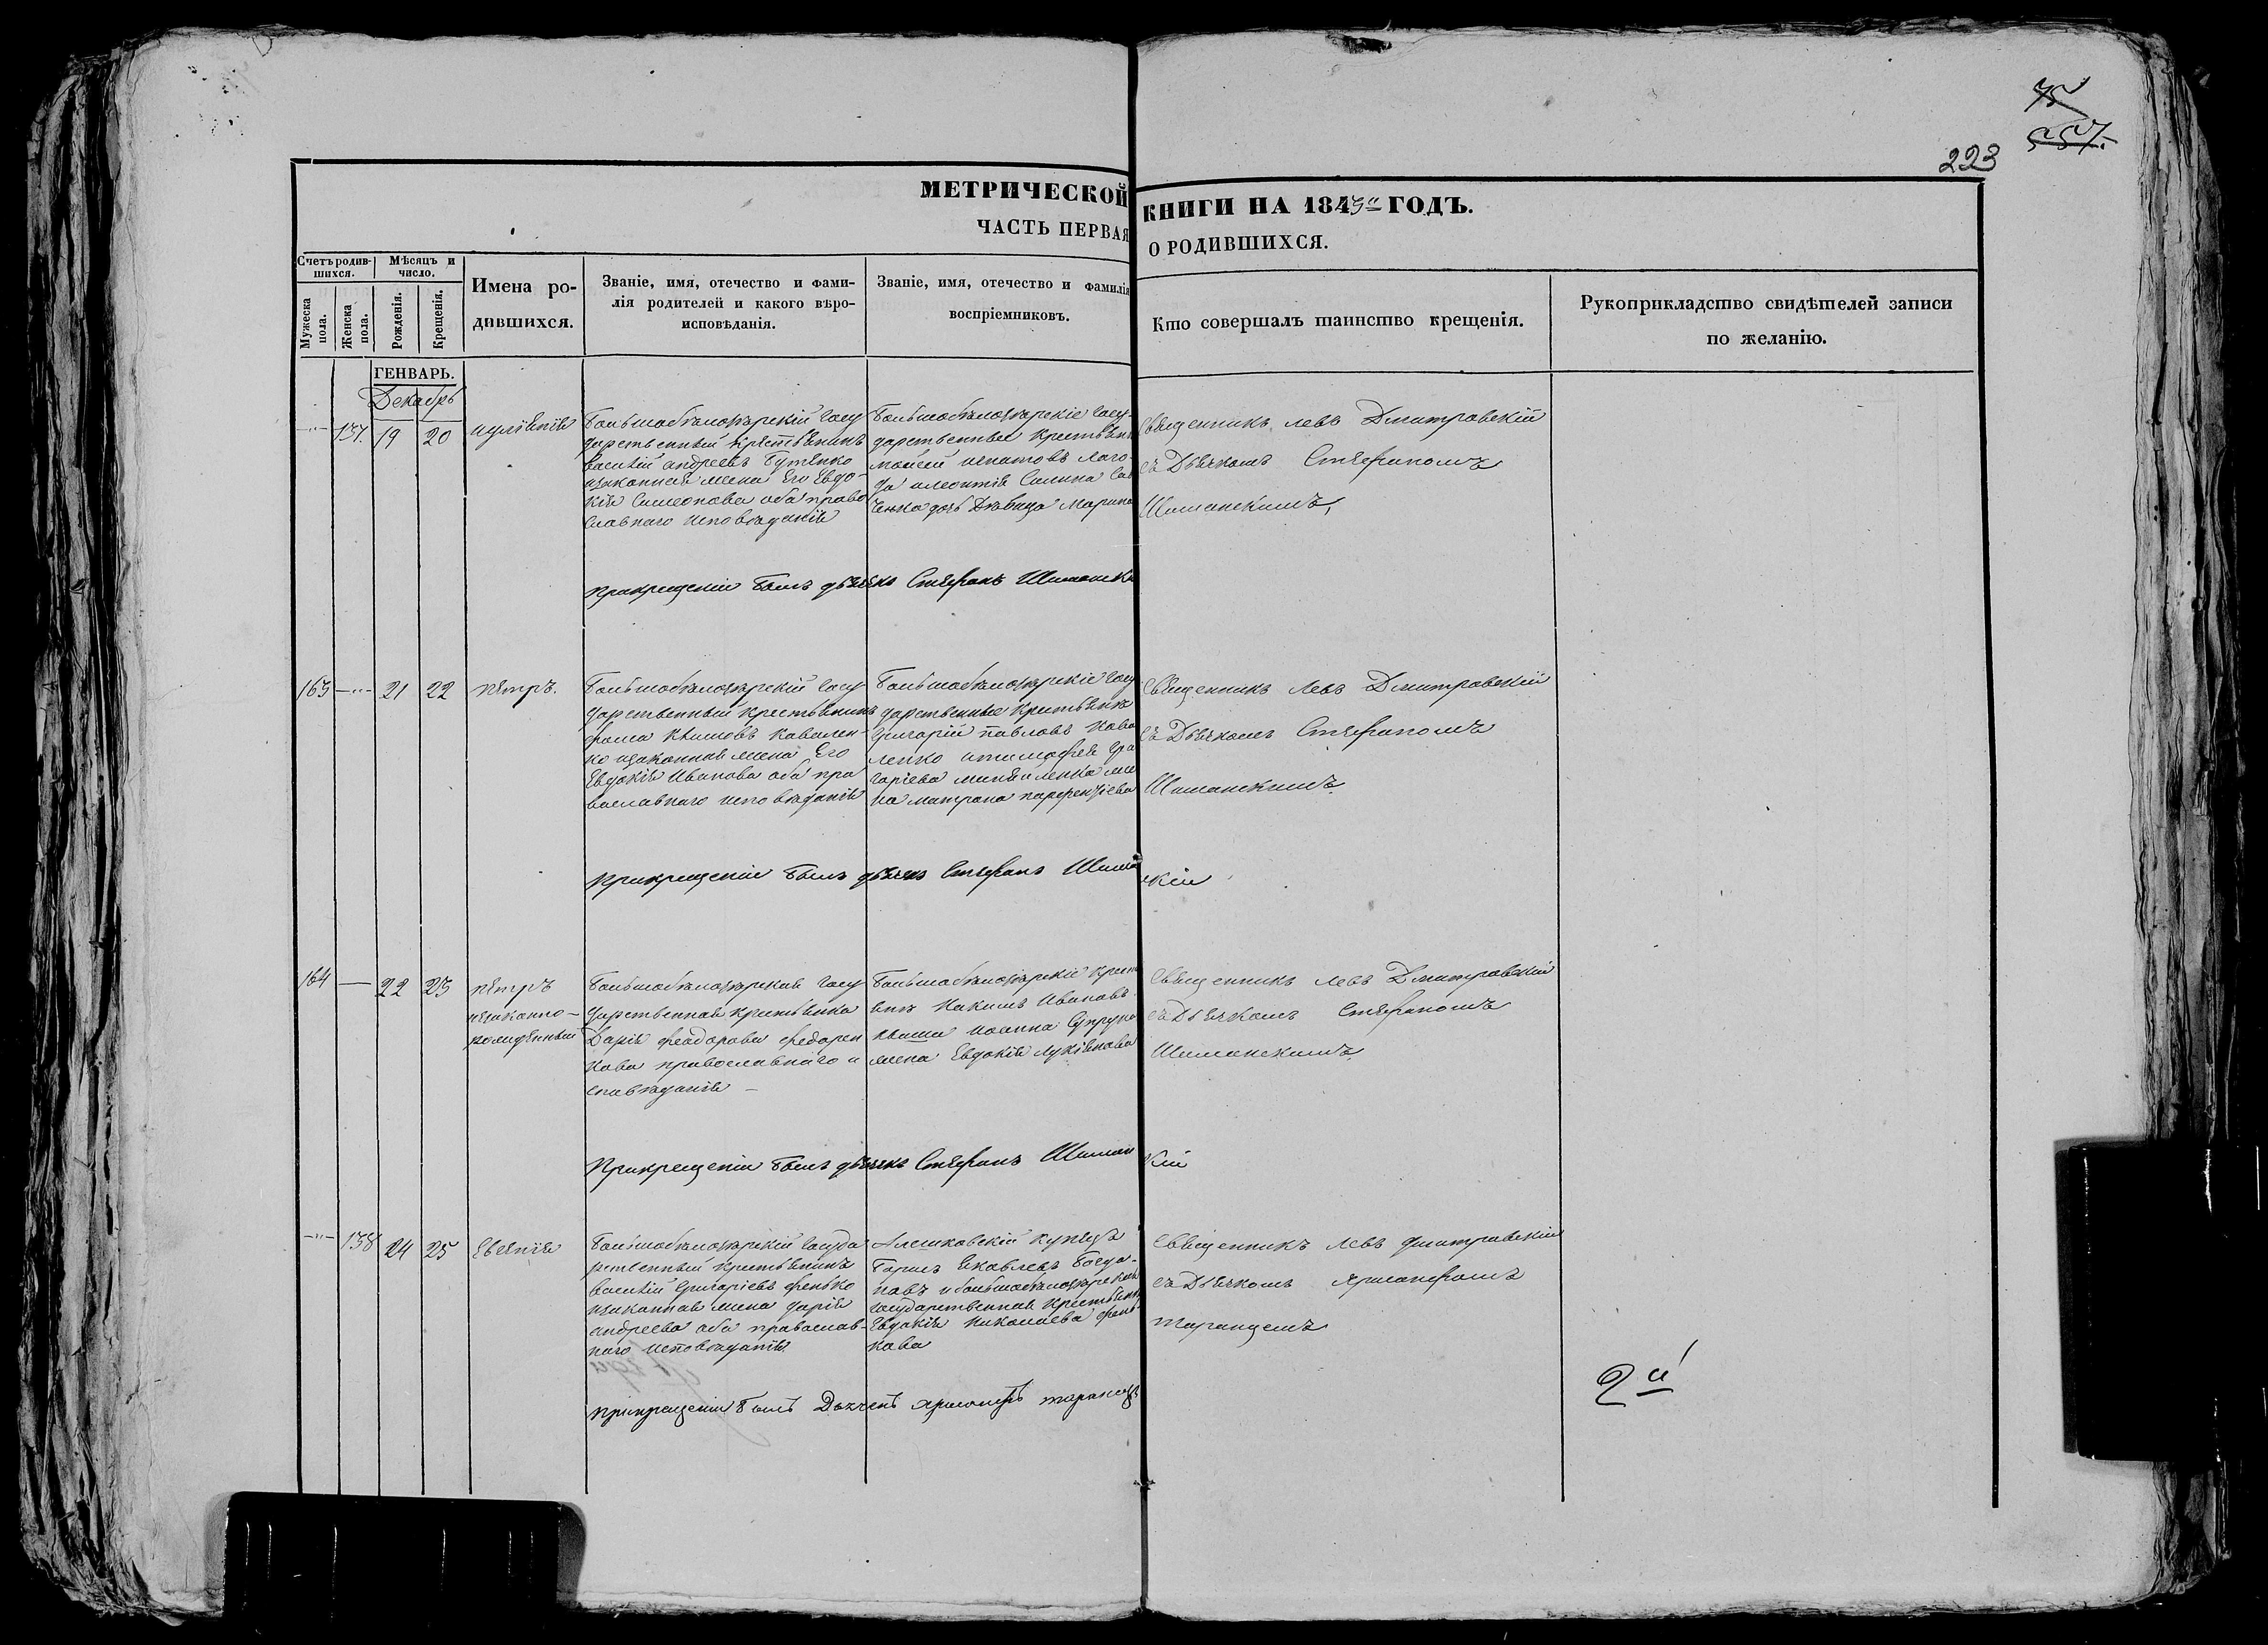 75
557.
223
МЕТРИЧЕСКОЙ КНИГИ НА 1843й ГОДЪ.
ЧАСТЬ ПЕРВАЯ О РОДИВШИХСЯ.
Счетъ родившихся.
Мужеска пола.
Женска пола.
Мѣсяцъ и число.
Рожденія.
Крещенія.
Имена родившихся.
Званіе, имя, отечество и фамилія родителей и какого вѣроисповѣданія.
Званіе, имя, отечество и фамилія воспріемниковъ.
Кто совершалъ таинство крещенія.
Рукоприкладство свидѣтелей записи по желанію.
ГЕНВАРЬ.
Декабрь
137. 19 20
иуліанія
Большобѣлозѣрскій госу
дарственный крестьянинъ
василій андреевъ Бутенко
изаконная жена Его Евдо-
кія Симеонова оба право
славнаго исповѣданія
Большобѣлозѣрскіе госу-
дарственные крестьяни
мойсей игнатовъ Лаго-
да
дочь Дѣвица Марина
Священникъ левъ Дмитровскій
съ Дьячкомъ Стефаномъ
Шиманскимъ,
прикрещеніи былъ дьячекъ Стефанъ Шимански
163 21 22
петръ.
Большобѣлозѣрскій госу
дарственный крестьянинъ
фома Климовъ Кавален-
ко изаконная жена Его
Евдокія Иванова оба пра
вославнаго исповѣданія
Большобѣлозѣрскіе госу
дарственные крестьянъ
Григорій павловъ Кова
ленко итимофея Гри
горіева жe
на матрона парфентіева
Священникъ Левъ Дмитровскій
съ Дьячкомъ Стефаномъ
Шиманскимъ.
Прикрещеніи былъ дьячекъ Стефанъ Шиман
скій
164 22 23
петръ
незаконно-
рожденный
Большобѣлозѣрская госу
дарственная крестьянка
Дарія феодорова федорен
кова православнаго и
сповѣданія
Большобѣлозѣрскіе крест
Иоанна Супруна
жена Евдокія Лукіянова
Священникъ левъ Дмитровскій
съ Дьячкомъ Стефаномъ
Шиманскимъ.
Прикрещеніи былъ дьячекъ Стефанъ Шиман
кій
138 24 25
Евгенія
Большобѣлозѣрскій госуда
рственный крестьянинъ
василій Григоріевъ фенько
изаконная жена дарія
андреева оба православ-
наго исповѣданія
Алешковскій купецъ
Борисъ Яковлевъ Богда-
новъ и большобѣлозѣрская
государственная крестьянка
Евдокія Николаева фень
кова
Священникъ левъ дмитровскій
съ Дьячкомъ
таранцемъ
прикрещеніи былъ Дьячекъ
2й